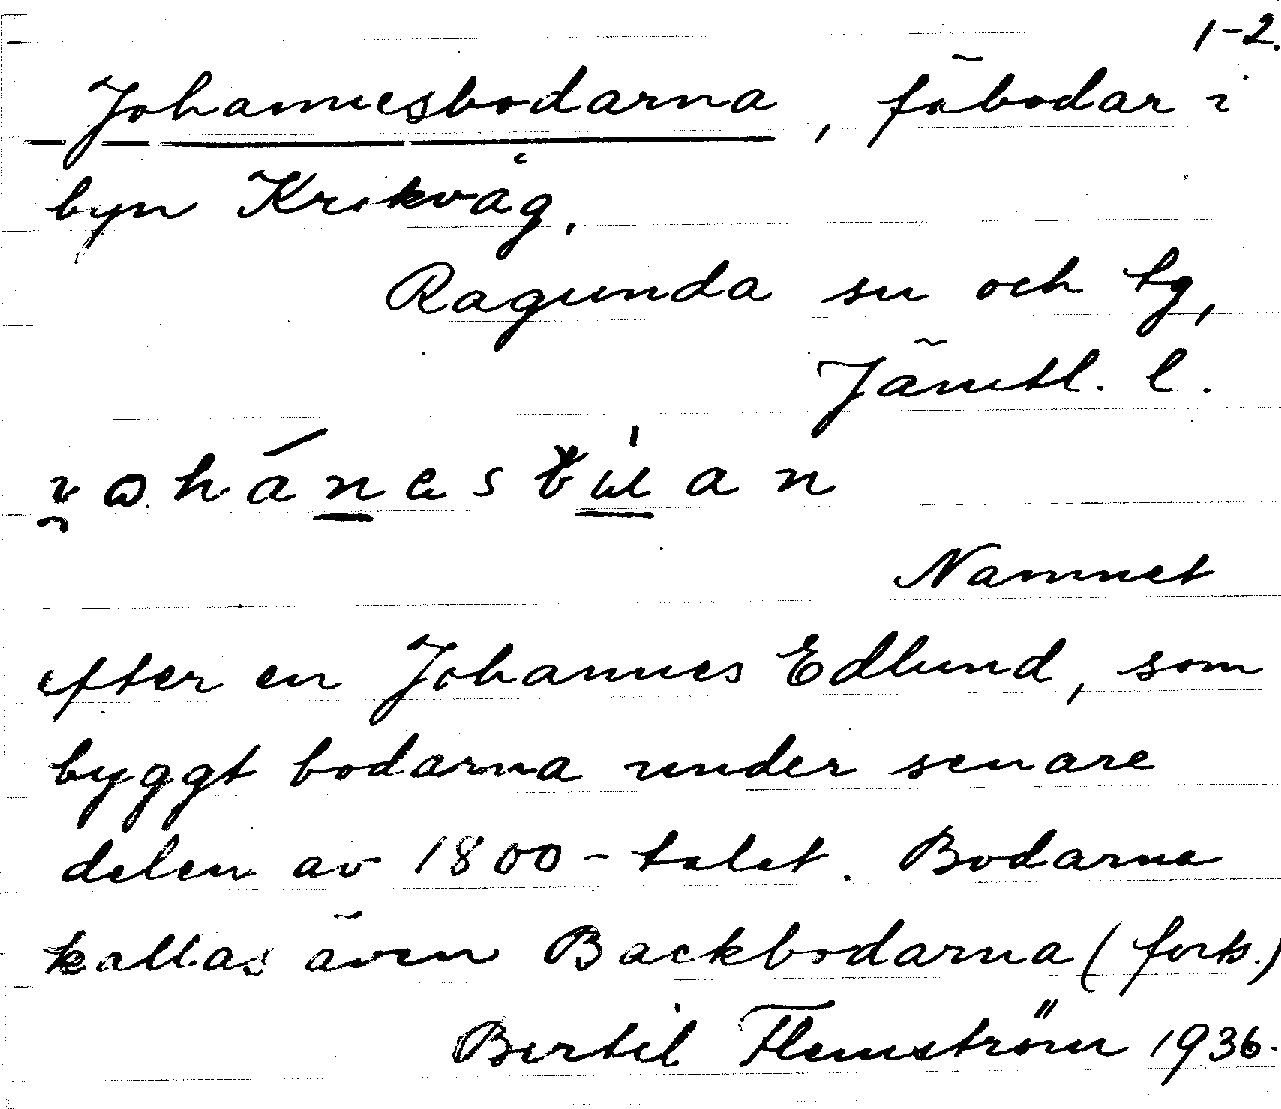 1-2.
Johannesbodarna, fäbodar i
byn Krokvåg.
Ragunda sn och tg,
Jämtl. l.
efter en Johannes Edlund, som
Namnet
byggt bodarna under senare
delen av 1800-talet. Bodarna
kallas även Backbodarna (forts.)
Bertil Flemström 1936.